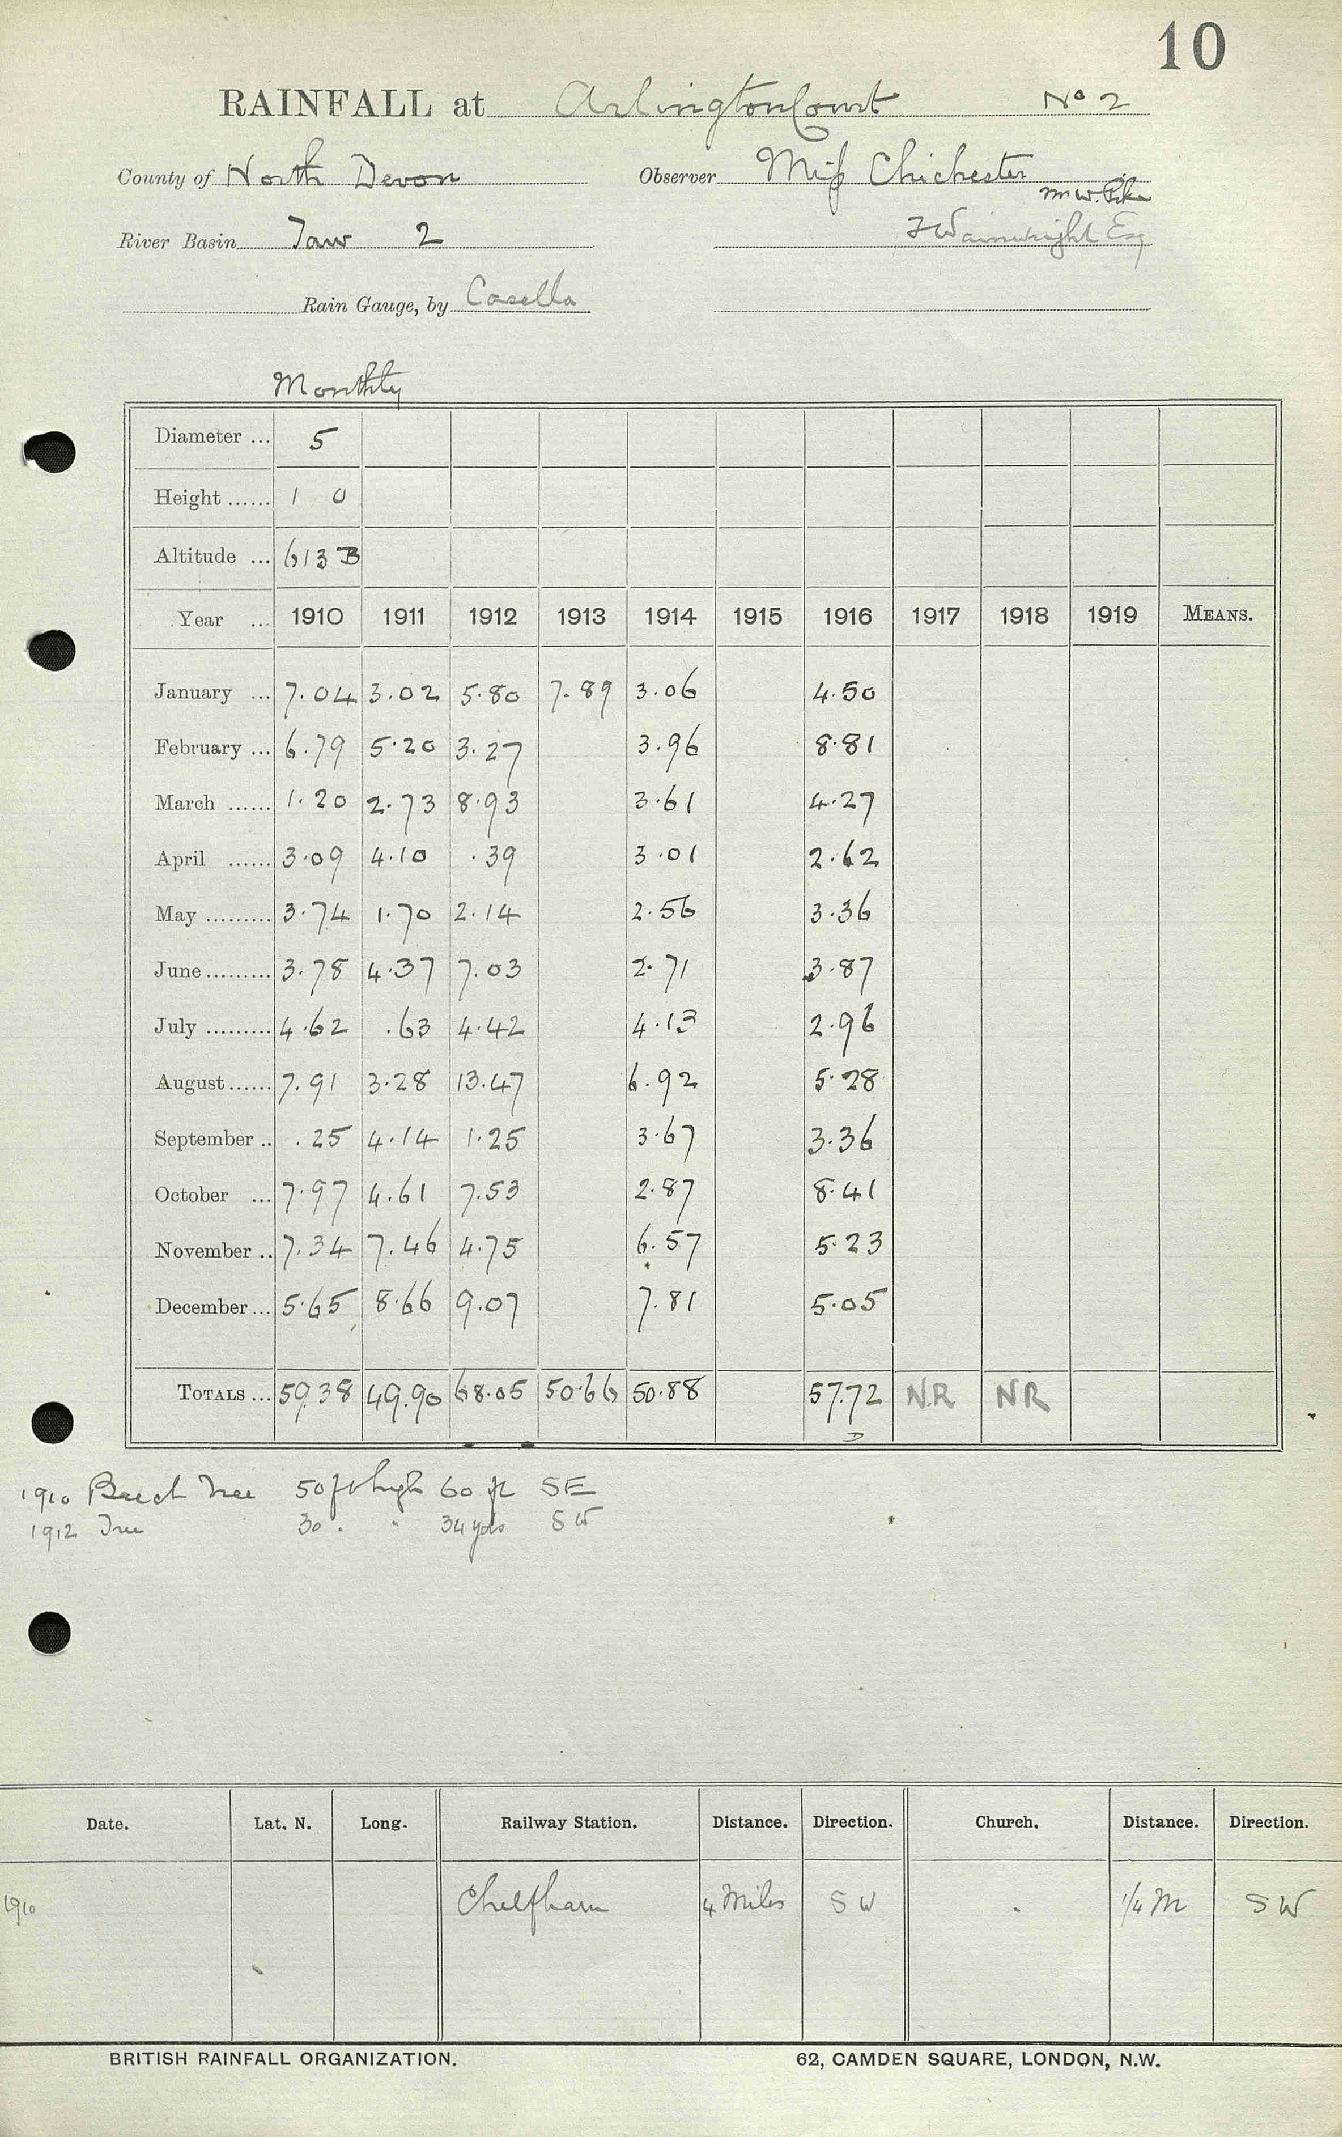 10
RAINFALL at Arlington Court No 2
County of North Devon Observer Miss Chichester
mw. Pike
River Basin Taw 2 F Wainwright Esq
Rain Gauge, by Casella
Monthly
Diameter ... 5
Height ...... 1 0
Altitude ... 613 B
Year ... 1910 1911 1912 1913 1914 1915 1916 1917 1918 1919 MEANS.
January ... 7.04 3.02 5.80 7.89 3.06 4.50
February ... 6.79 5.20 3.27 3.96 8.81
March ...... 1.20 2.73 8.93 3.61 4.27
April ...... 3.09 4.10 .39 3.01 2.62
May ......... 3.74 1.70 2.14 2.56 3.36
June ......... 3.78 4.37 7.03 2.71 3.87
July ......... 4.62 .63 4.42 4.13 2.96
August ...... 7.91 3.28 13.47 6.92 5.28
September .. .25 4.14 1.25 3.67 3.36
October ... 7.97 4.61 7.53 2.87 8.41
November .. 7.34 7.46 4.75 6.57 5.23
December ... 5.65 8.66 9.07 7.81 5.05
TOTALS ... 59.38 49.90 68.05 50.66 50.88 57.72 N.R NR
1910 Beech Tree 50 ft high 60 ft SE
1912 Tree 30 . " 34 yds SW
Date. Lat. N. Long. Railway Station. Distance. Direction. Church. Distance. Direction.
1910 Chelfham 4 Miles SW . 1/4 M SW
BRITISH RAINFALL ORGANIZATION. 62, CAMDEN SQUARE, LONDON, N.W.